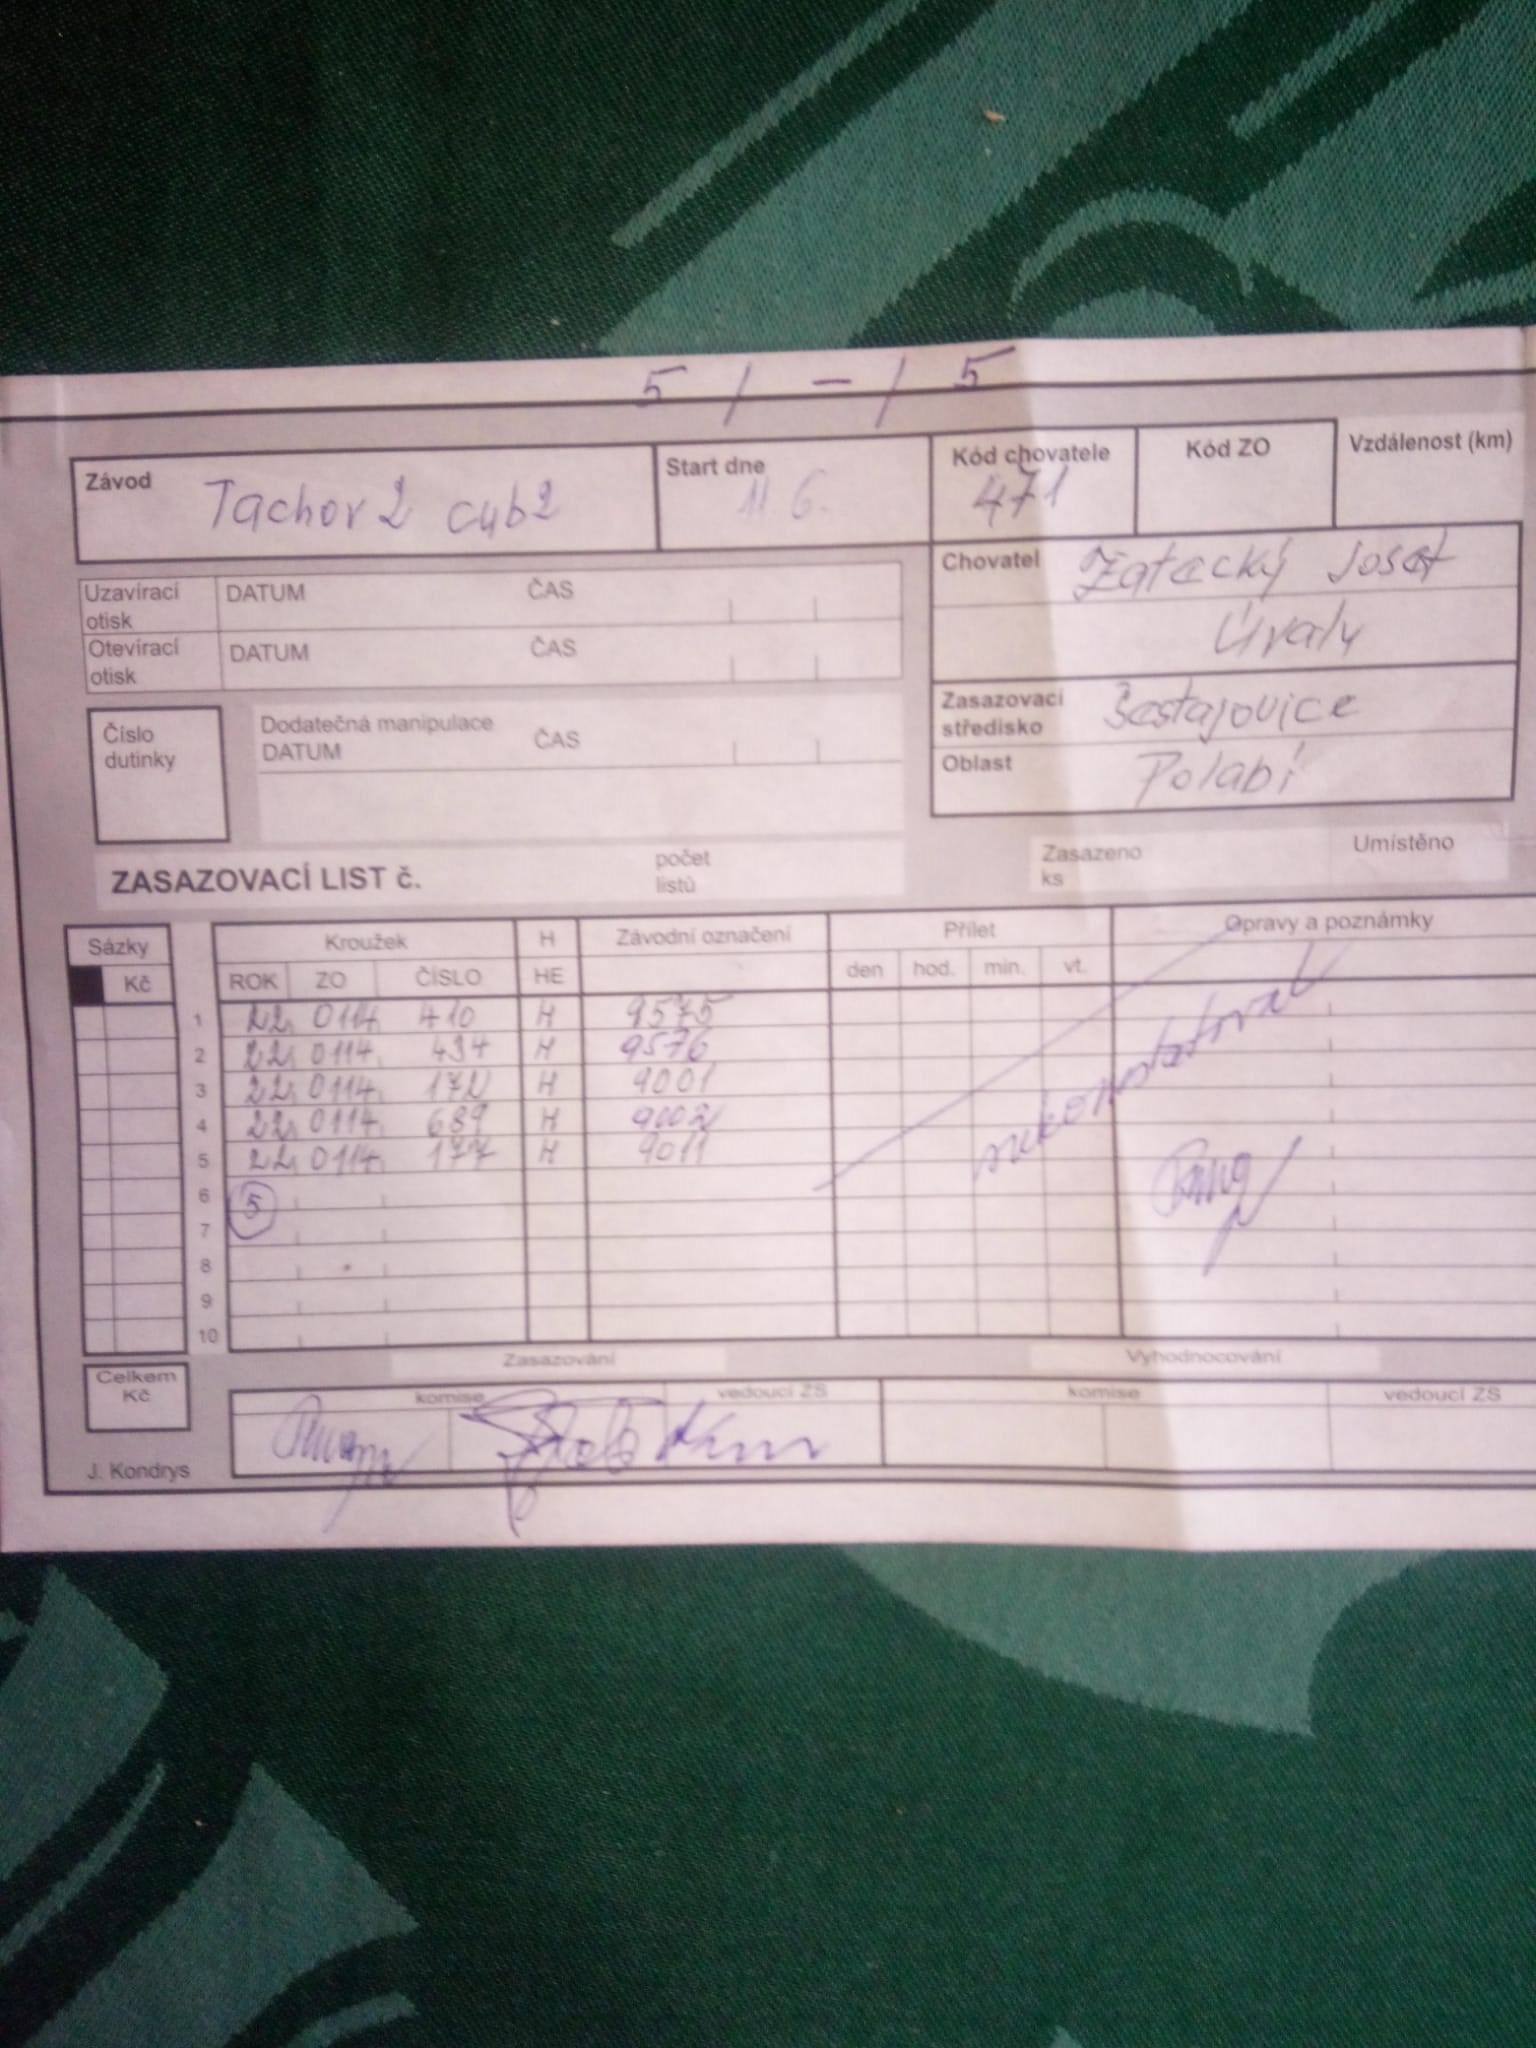 5 / - / 5
Závod Tachov 2 cyb2 Start dne 11.6. Kód chovatele 471 Kód ZO Vzdálenost (km)
Uzavírací otisk DATUM ČAS
Otevírací otisk DATUM ČAS
Chovatel Žatecký Josef
Úvaly
Číslo dutinky
Dodatečná manipulace
DATUM ČAS
Zasazovací středisko Šestajovice
Oblast Polabí
ZASAZOVACÍ LIST č. počet listů Zasazeno ks Umístěno
Sázky Kroužek H Závodní označení Přílet Opravy a poznámky
Kč ROK ZO ČÍSLO HE den hod. min. vt.
1 22 0114 410 H 9575
2 22 0114 434 H 9576
3 22 0114 172 H 9001
4 22 0114 689 H 9002
5 22 0114 177 H 9011
nekonstatoval
6 5
7
8
9
10
Celkem Kč
Zasazování Vyhodnocování
komise vedoucí ZS komise vedoucí ZS
J. Kondrys